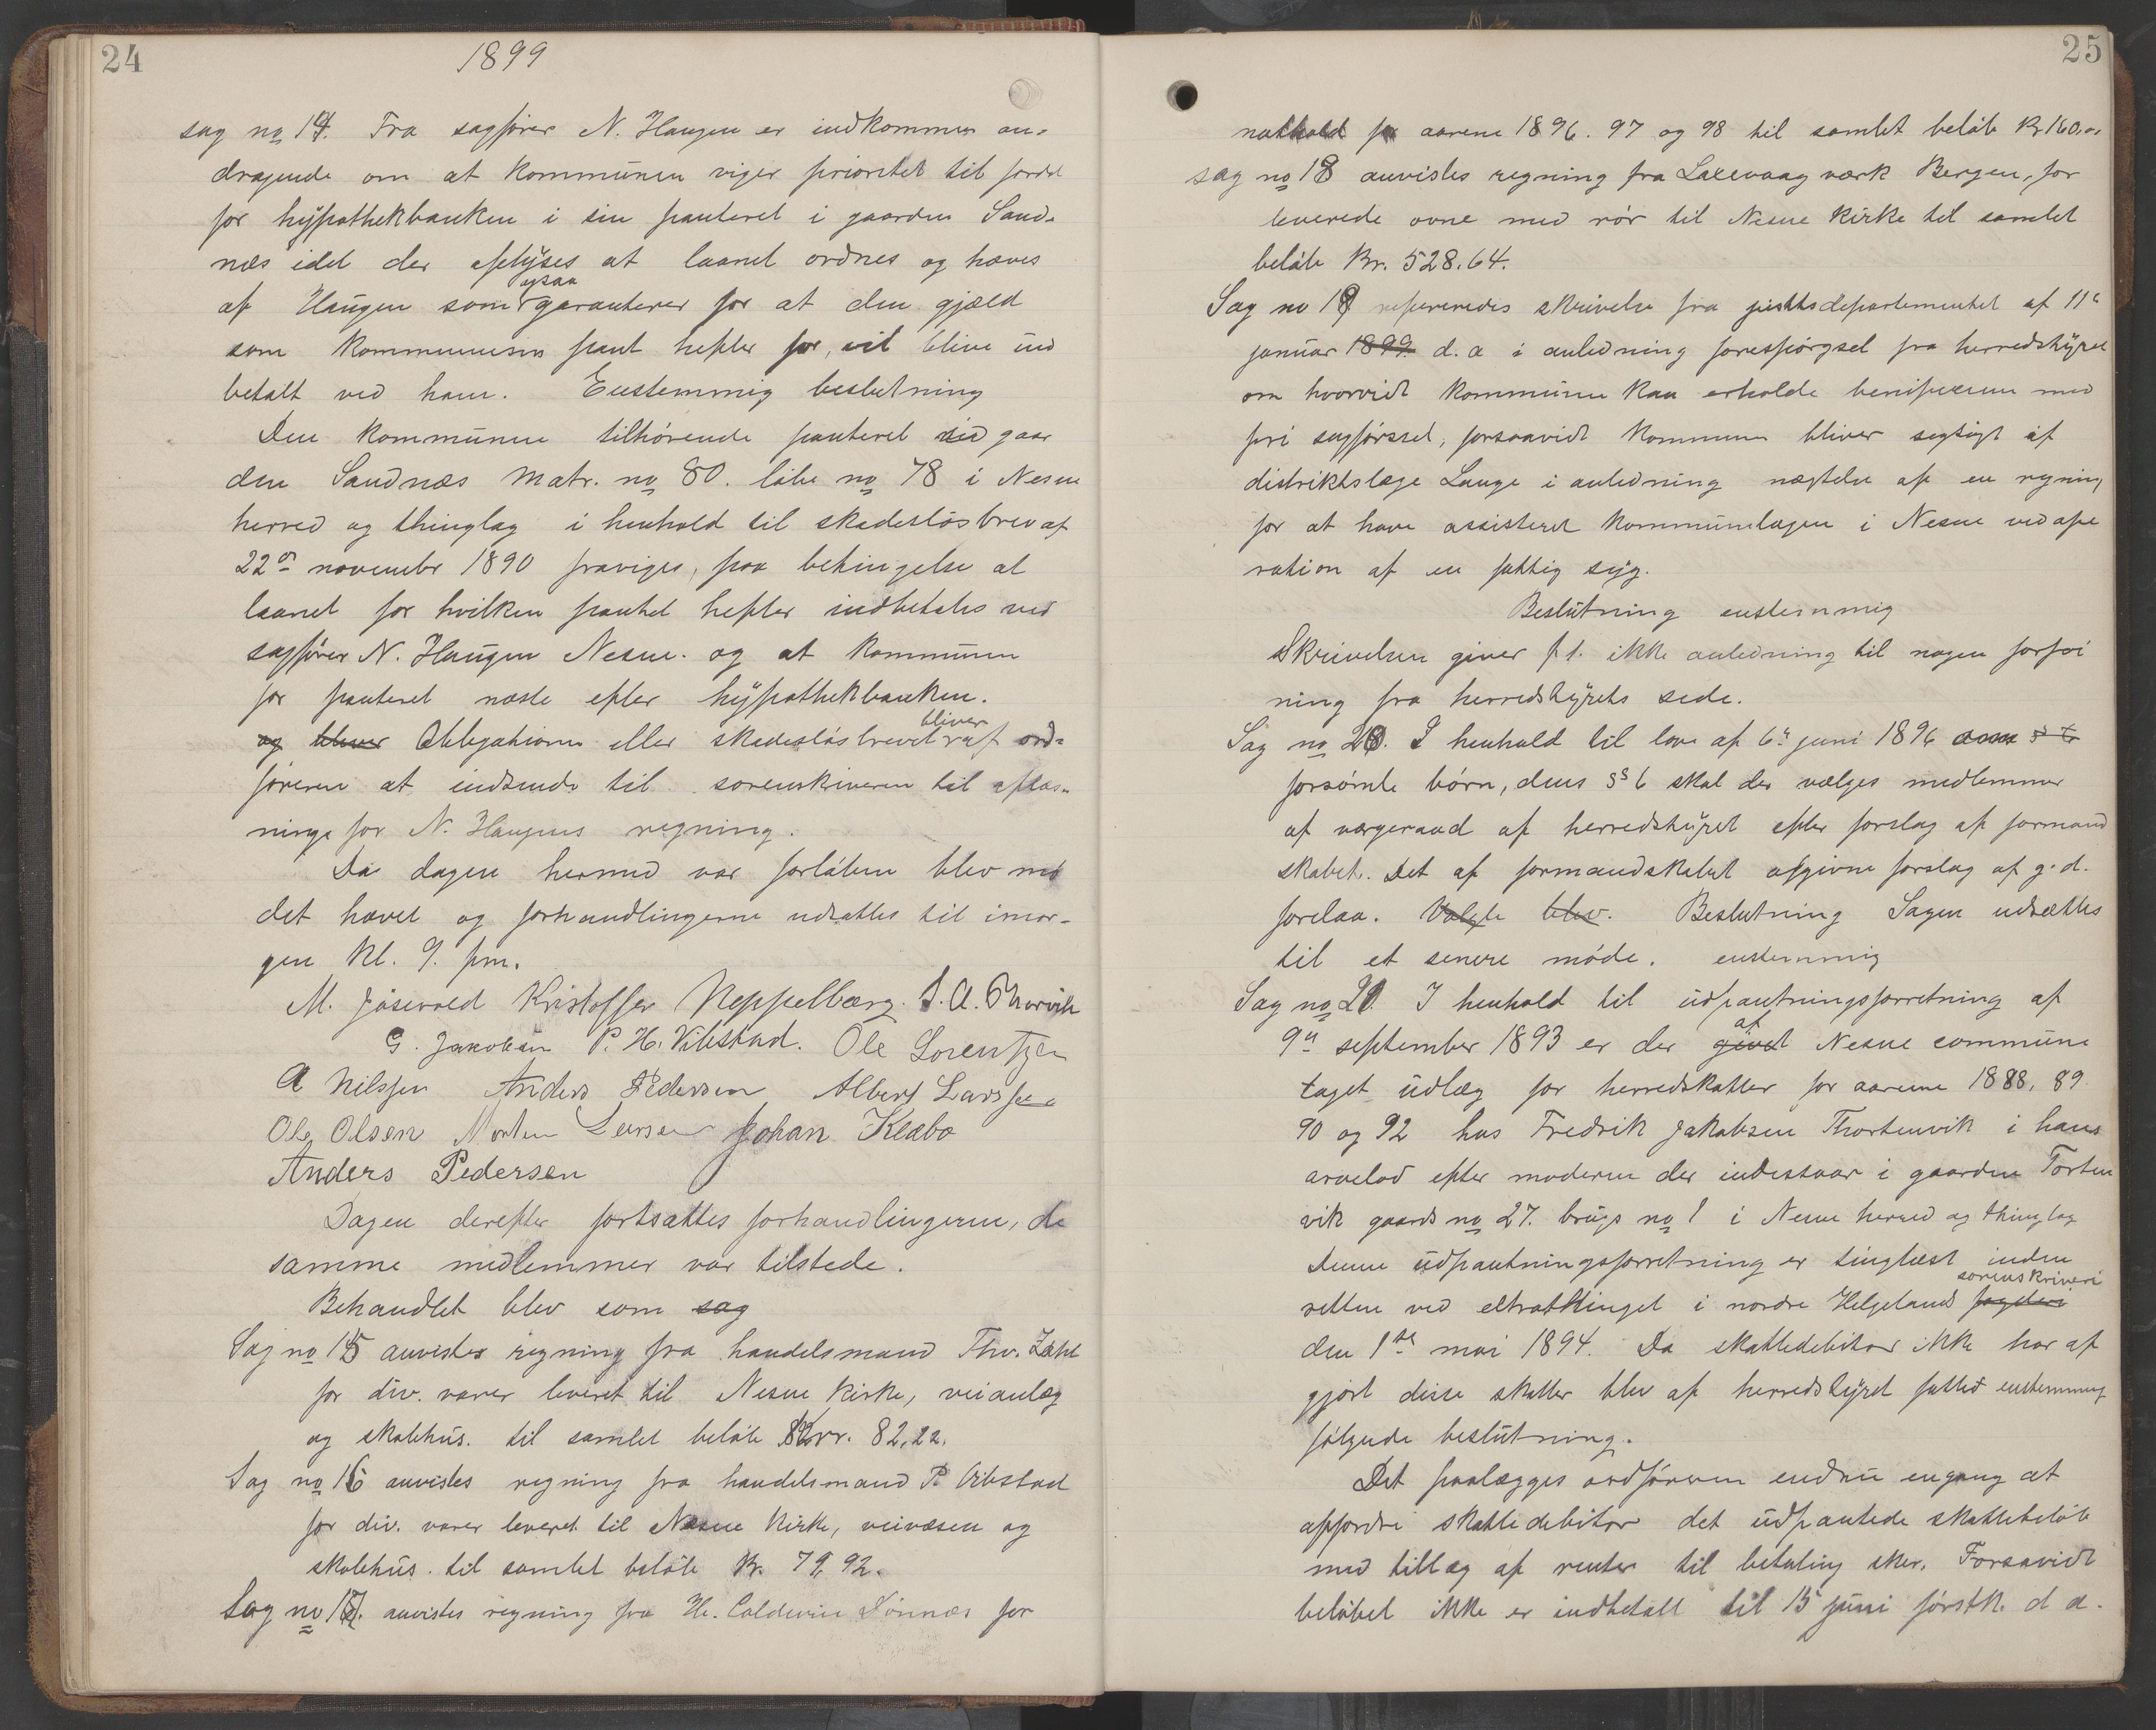 24
1899
sag no 14. Fra sagfører N. Haugen er indkommen an-
dragende om at kommunen viger prioritet til fordel
for hypothekbanken i sin panteret i gaarden Sand-
næs idet der oplyses at laanet ordnes og hæves
af Haugen som ogsaa garanterer for at den gjæld
som kommunens pant hefter for, vil blive ind
betalt ved ham. Enstemmig beslutning
Den kommunen tilhørende panteret i gaar
den Sandnæs Matr. no 80. løbe no 78 i Nesne
herred og thinglag i henhold til skadesløsbrev af
22de november 1890 fraviges, paa betingelse at
laanet for hvilken pantet hefter indbetales ved
sagfører N. Haugen Nesne. og at kommunen
for panteret næste efter hypothekbanken.
og bliver Obligationen eller skadesløsbrevet bliver af ord-
føreren at indsende til sorenskriveren til aflæs-
ninge for N. Haugens regning.
Da dagen hermed var forløben blev mø
det hævet og forhandlingerne udsattes til imor-
gen kl. 9. fm.
M. Jøsevold Kristoffer Neppelberg. J. A.
G. Jakobsen P. H. Vibstad. Ole Lorentzen
A Nilssen Anders Pedersen Albert Larssen
Ole Olsen Morten Larsen Johan Klæbo
Anders Pedersen
Dagen derefter fortsattes forhandlingerne, de
samme medlemmer var tilstede.
Behandlet blev som sag
Sag no 15 anvistes regning fra handelsmand Thv. Zahl
for div. varer leveret til Nesne kirke, veianlæg
og skolehus. til samlet beløb kr. 82,22.
Sag no 16 anvistes regning fra handelsmand P. Vibstad
for div. varer leveret til Nesne kirke, veivæsen og
skolehus. til samlet beløb Kr. 79,92.
Sag no 17. anvistes regning fra Hr. Coldevin Dønnæs for
25
nathold for aarene 1896. 97 og 98 til samlet beløb Kr 160,00
sag no 18 anvistes regning fra Laxevaag værk Bergen, for
leverede ovne med rør til Nesne kirke til samlet
beløb Kr. 528.64.
Sag no 19 refereredes skrivelse fra justitsdepartementet af 11te
januar 1899 d. a i anledning forespørgsel fra herredstyret
om hvorvidt kommunen kan erholde benificium med
fri sagførsel, forsaavidt kommunen bliver sagsøgt af
distriktslæge Lange i anledning nægtelse af en regning
for at have assisteret kommunelægen i Nesne ved ope
ration af en fattig syg.
Beslutning enstemmig
Skrivelsen giver p.t. ikke anledning til nogen forføi
ning fra herredstyrets side.
Sag no 20. I henhold til lov af 6te juni 1896 om
forsømte børn, dens §§ 6 skal der vælges medlemmer
af værgeraad af herredstyret efter forslag af formand
skabet. Det af formandskabet afgivne forslag af g. d.
forelaa. Valgte blev. Beslutning Sagen udsættes
til et senere møde. enstemmig
Sag no 21. I henhold til udpantningsforretning af
9de september 1893 er der givet af Nesne commune
taget udlæg for herredskatter for aarene 1888, 89
90 og 92 hos Fredrik Jakobsen Thortenvik i hans
arvelod efter moderen der indestaar i gaarden Torten
vik gaards no 27. brugs no 1 i Nesne herred og thinglag
Denne udpantningsforretning er tinglæst inden
retten ved extrathinget i nordre Helgelands fogderi sorenskriveri
den 1ste mai 1894. Da skattedebitor ikke har af
gjort disse skatter blev af herredstyret fattet enstemmig
følgende beslutning.
Det paalægges ordføreren endnu engang at
affordre skattedebitor det udpantede skattebeløb
med tillæg af renter til betaling sker. Forsavidt
beløbet ikke er indbetalt til 15 juni førstk. d a.